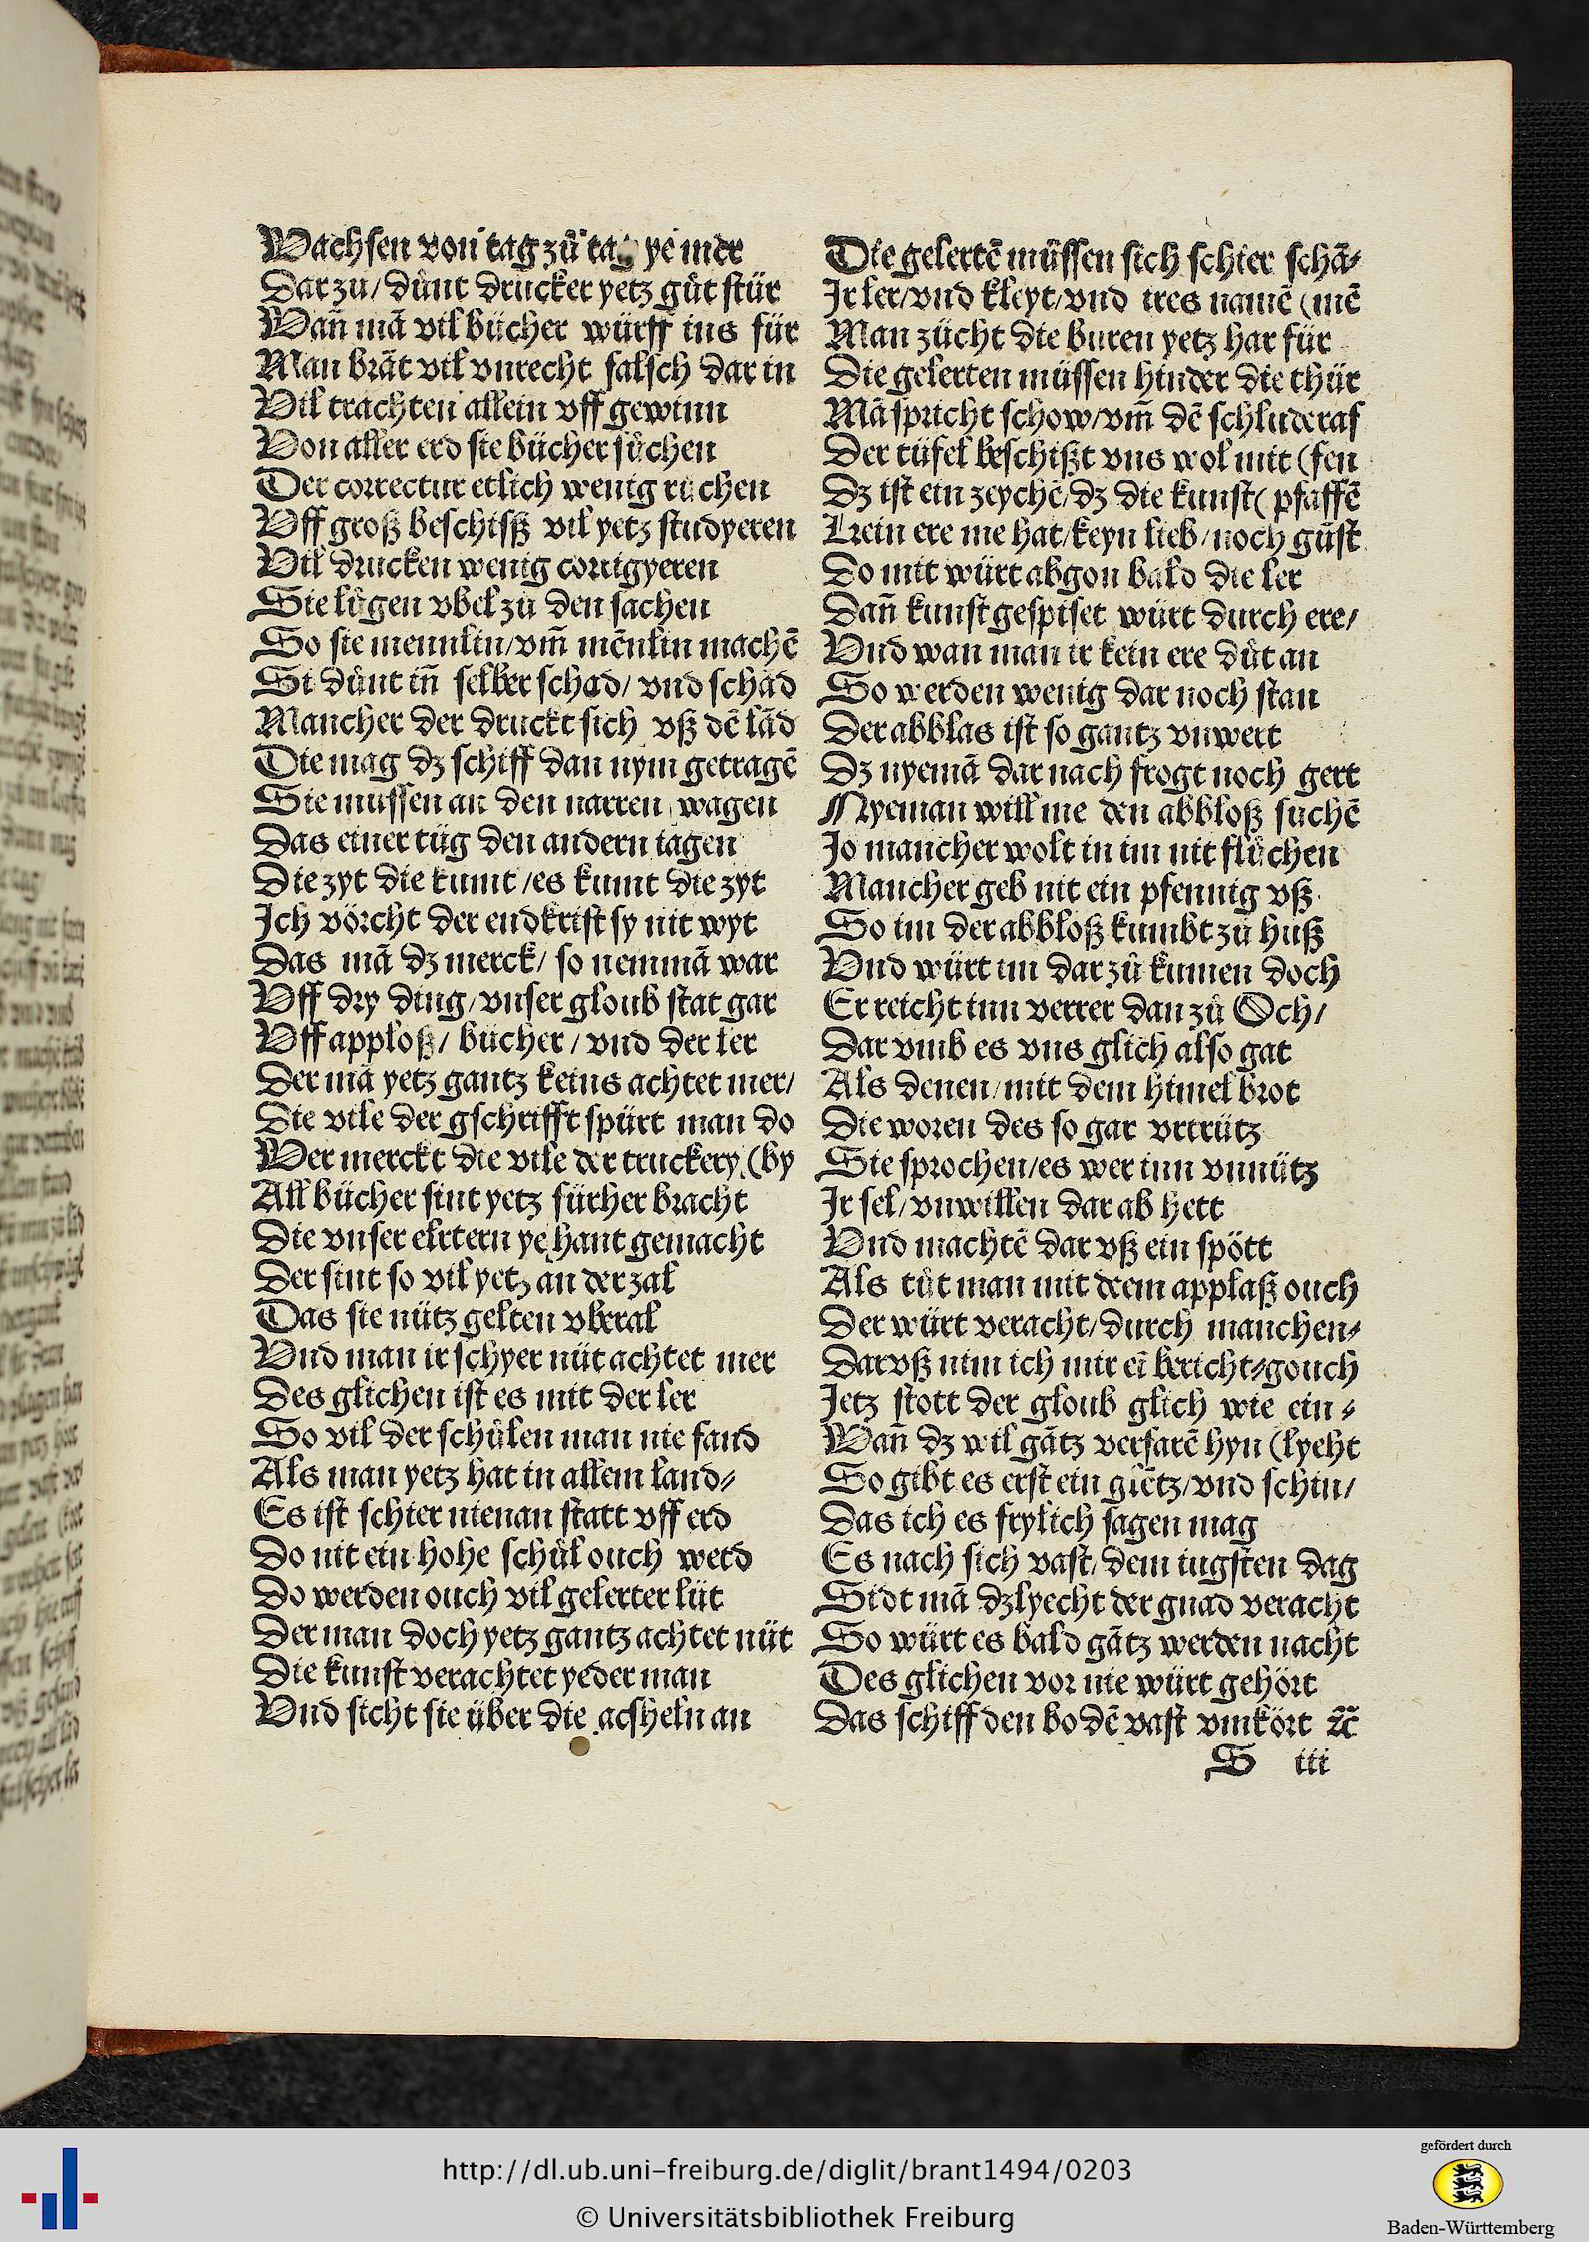 Wachsen von tag zů tag ye mer
Dar zu / důnt drucker yetz gůt stür
Wan̄ mā vil bücher würff ins für
Man brāt vil vnrecht falsch dar in
Vil trachten allein vff gewinn
Von aller erd sie bücher sůchen
Der correctur etlich wenig růchen
Vff groß beschisß vil yetz studyeren
Vil drucken wenig corrigyeren
Sie lůgen vbel zů den sachen
So sie mennlin / vm̄ mēnlin machē
Si důnt in̄ selber schad / vnd schād
Mancher der druckt sich vß dē lād
Die mag dz schiff dan nym getragē
Sie mussen an den narren wagen
Das einer tüg den andern iagen
Die zyt die kumt / es kumt die zyt
Ich vörcht der endkrist sy nit wyt
Das mā dz merck / so nemmā war
Vff dry ding / vnser gloub stat gar
Vff apploß / bücher / vnd der ler
Der mā yetz gantz keins achtet mer /
Die vile der gschrifft spürt man do
Wer merckt die vile der truckery (by
All bücher sint yetz fürher bracht
Die vnser elrtern ye hant gemacht
Der sint so vil yetz an der zal
Das sie nütz gelten vberal
Vnd man ir schyer nüt achtet mer
Des glichen ist es mit der ler
So vil der schůlen man nie fand
Als man yetz hat in allem land⸗
Es ist schier nienan statt vff erd
Do nit ein hohe schůl ouch werd
Do werden ouch vil gelerter lüt
Der man doch yetz gantz achtet nüt
Die kunst verachtet yeder man
Vnd sicht sie über die acsheln an
Die gelertē müssen sich schier schā⸗
Ir ler / vnd kleyt / vnd ires namē (mē
Man zücht die buren yetz har für
Die gelerten müssen hinder die thür
Mā spricht schow / vm̄ dē schluderaf
Der tüfel beschißt vns wol mit (fen
Dz ist ein zeychē / dz die kunst ( pfaffē
Kein ere me hat / keyn lieb / noch gūst
Do mit würt abgon bald die ler
Dan̄ kunst gespiset würt durch ere /
Vnd wan man ir kein ere důt an
So werden wenig dar noch stan
Der abblas ist so gantz vnwert
Dz nyemā dar nach frogt noch gert
Nyeman will me den abbloß suchē
Jo mancher wolt in im nit flůchen
Mancher geb nit ein pfennig vß
So im der abbloß kumbt zů huß
Vnd würt im dar zů kumen doch
Er reicht inn verrer dan zů Och /
Dar vmb es vns glich also gat
Als denen / mit dem himel brot
Die woren des so gar vrtrütz
Sie sprochen / es wer inn vnnütz
Ir sel / vnwillen dar ab hett
Vnd machtē dar vß ein spött
Als tůt man mit deem applaß ouch
Der würt veracht / durch manchen⸗
Dar vß nim ich mir eī bericht⸗gouch
Jetz stott der gloub glich wie ein⸗
Wan̄ dz wil gātz verfarē hyn (lyeht
So gibt es erst ein glētz / vnd schin /
Das ich es frylich sagen mag
Es nach sich vast / dem iugsten dag
Sidt mā dz lyecht der gnad veracht
So würt es bald gātz werden nacht
Des glichen vor nie würt gehört
Das schiff den bo dē vast vmkört ⁊c̄
S iii
http://dl.ub.uni-freiburg.de/diglit/brant1494/0203
© Universitätsbibliothek Freiburg
gefördert durch
Baden-Württemberg